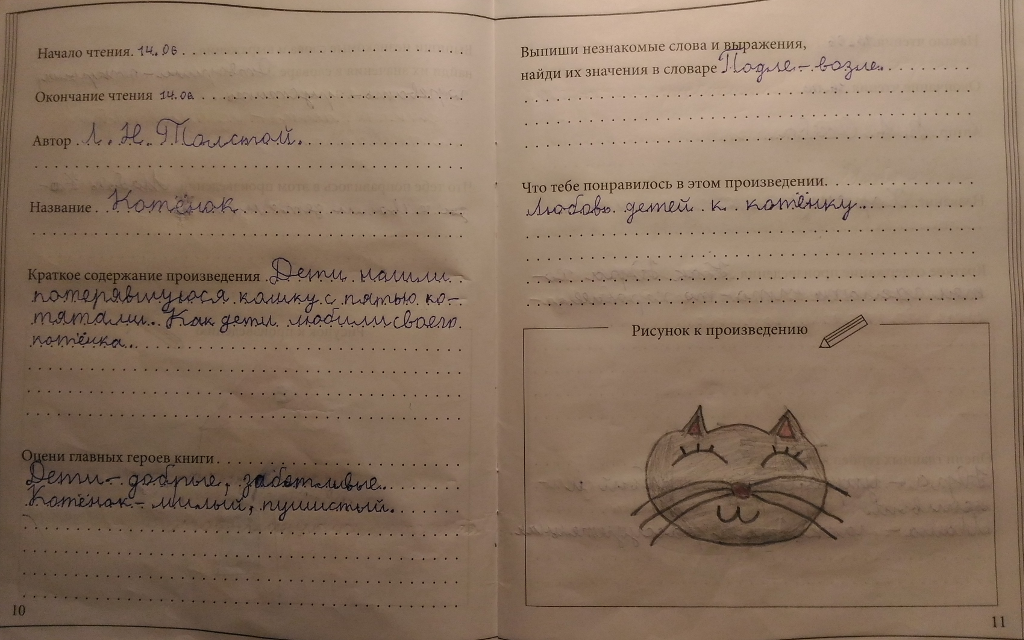 Начало чтения. 14.06
Окончание чтения 14.06
Автор Л. Н. Толстой.
Название Котёнок
Краткое содержание произведения Дети нашли
потерявшуюся кошку с пятью ко-
тятами. Как дети любили своего
котёнка.
Оцени главных героев книги
Дети - добрые, заботливые.
Котёнок - милый, пушистый.
10
Выпиши незнакомые слова и выражения,
найди их значения в словаре Подле - возле.
Что тебе понравилось в этом произведении.
Любовь детей к котёнку.
Рисунок к произведению
11